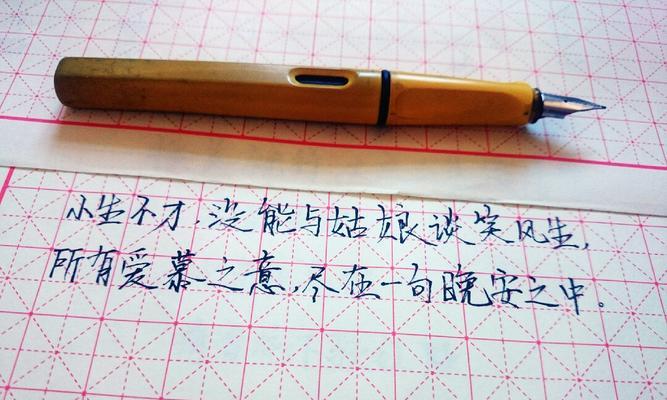 小生不才,没能与姑娘谈笑风生,
所有爱慕之意,尽在一句晚安之中。